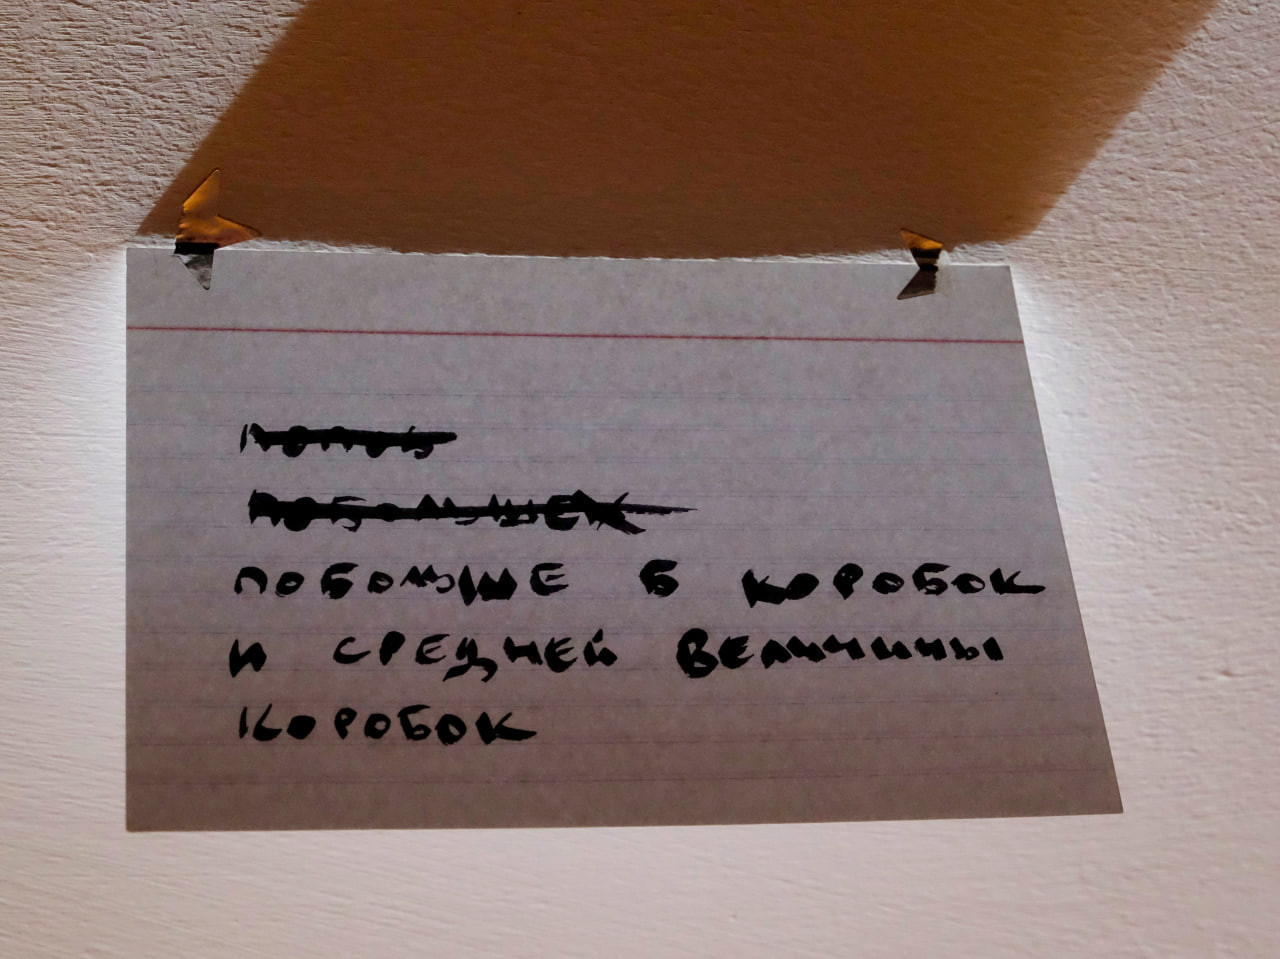 ПОБОЛЬШЕ Б КОРОБОК
И СРЕДНЕЙ ВЕЛИЧИНЫ
КОРОБОК